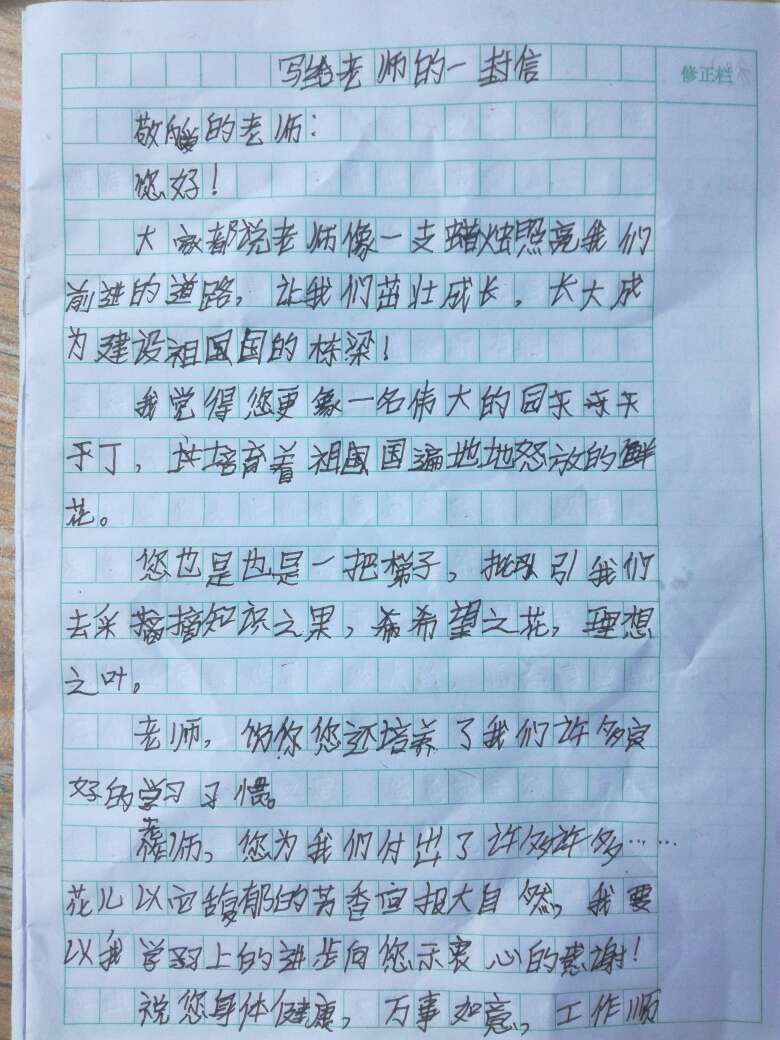 写给老师的一封信
修正栏
敬的老师：
您好！
大家都说老师像一支蜡烛照亮我们
前进的道路，让我们茁壮成长，长大成
为建设祖国国的栋梁！
我觉得您更象一名伟大的园
丁，培育着祖国国遍地地怒放的鲜
花。
您也是也是一把梯子，引我们
去采摘摘知识之果，希希望之花，理想
之叶。
老师，你您还培养了我们许多良
好的学习习惯。
老师，您为我们付出了许多许多……
花儿以它馥郁的芳香回报大自然，我要
以我学习上的进步向您示衷心的感谢！
祝您身体健康，万事如意，工作顺